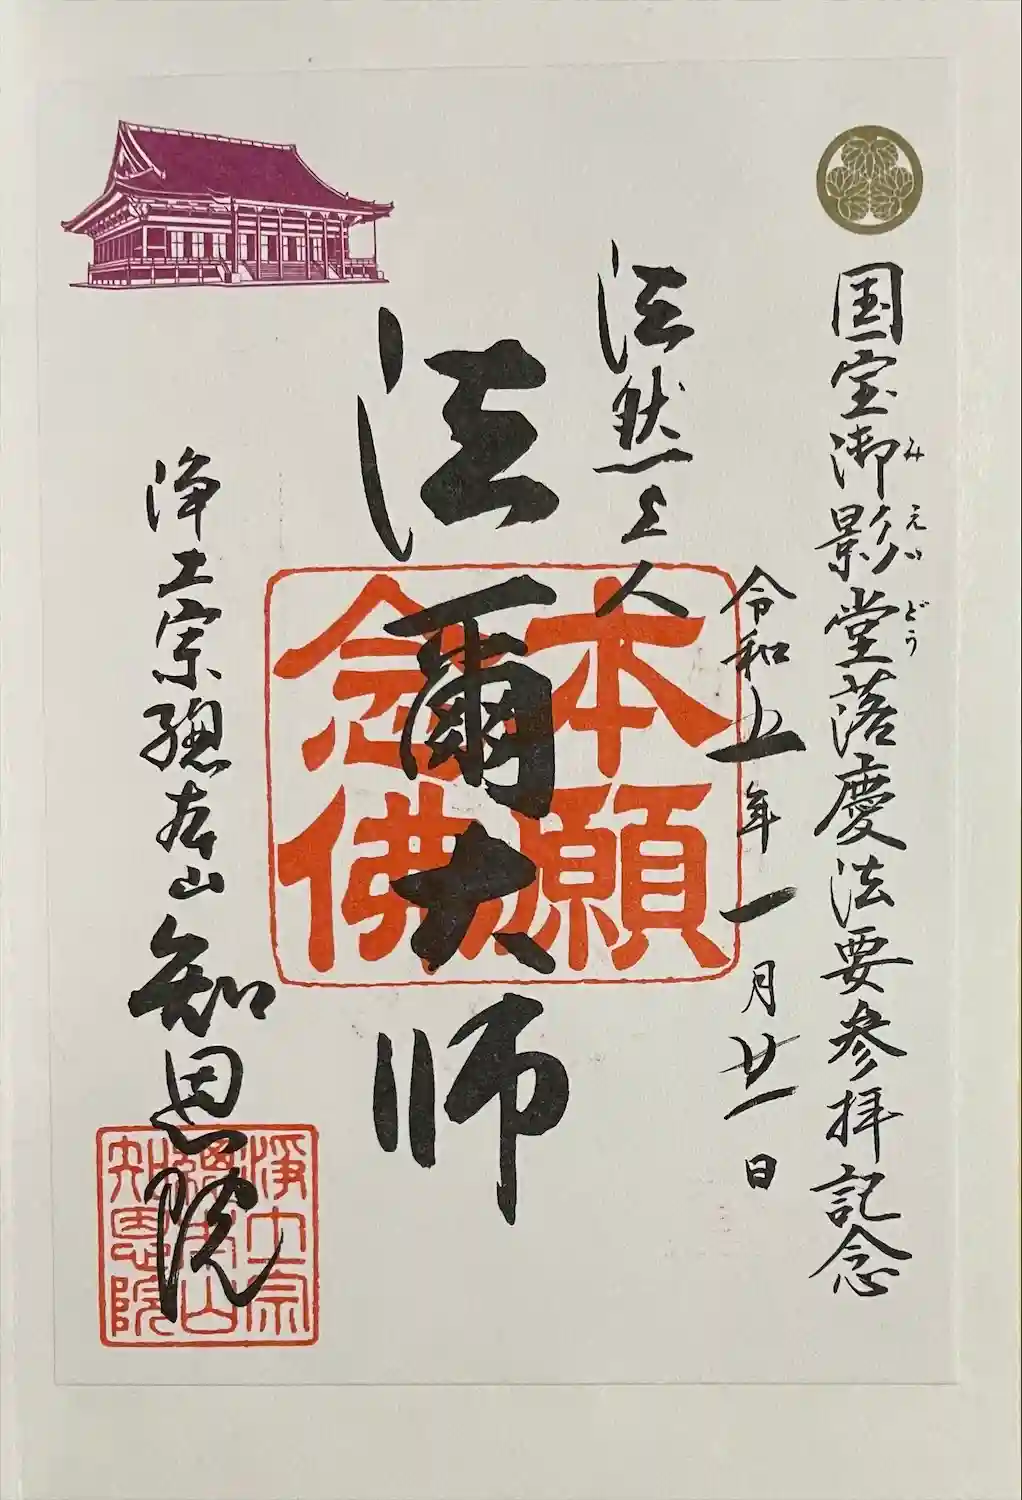 国宝御影堂落慶法要参拝記念
みえいどう
令和五年一月廿一日
法然上人
法爾大師
本願
念佛
浄土宗總本山知恩院
浄土宗
總本山
知恩院